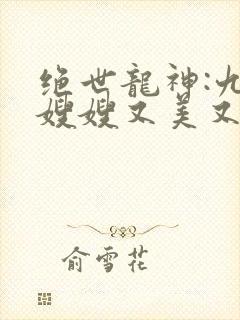 绝世龍神:九
嫂嫂又美又
俞雪花